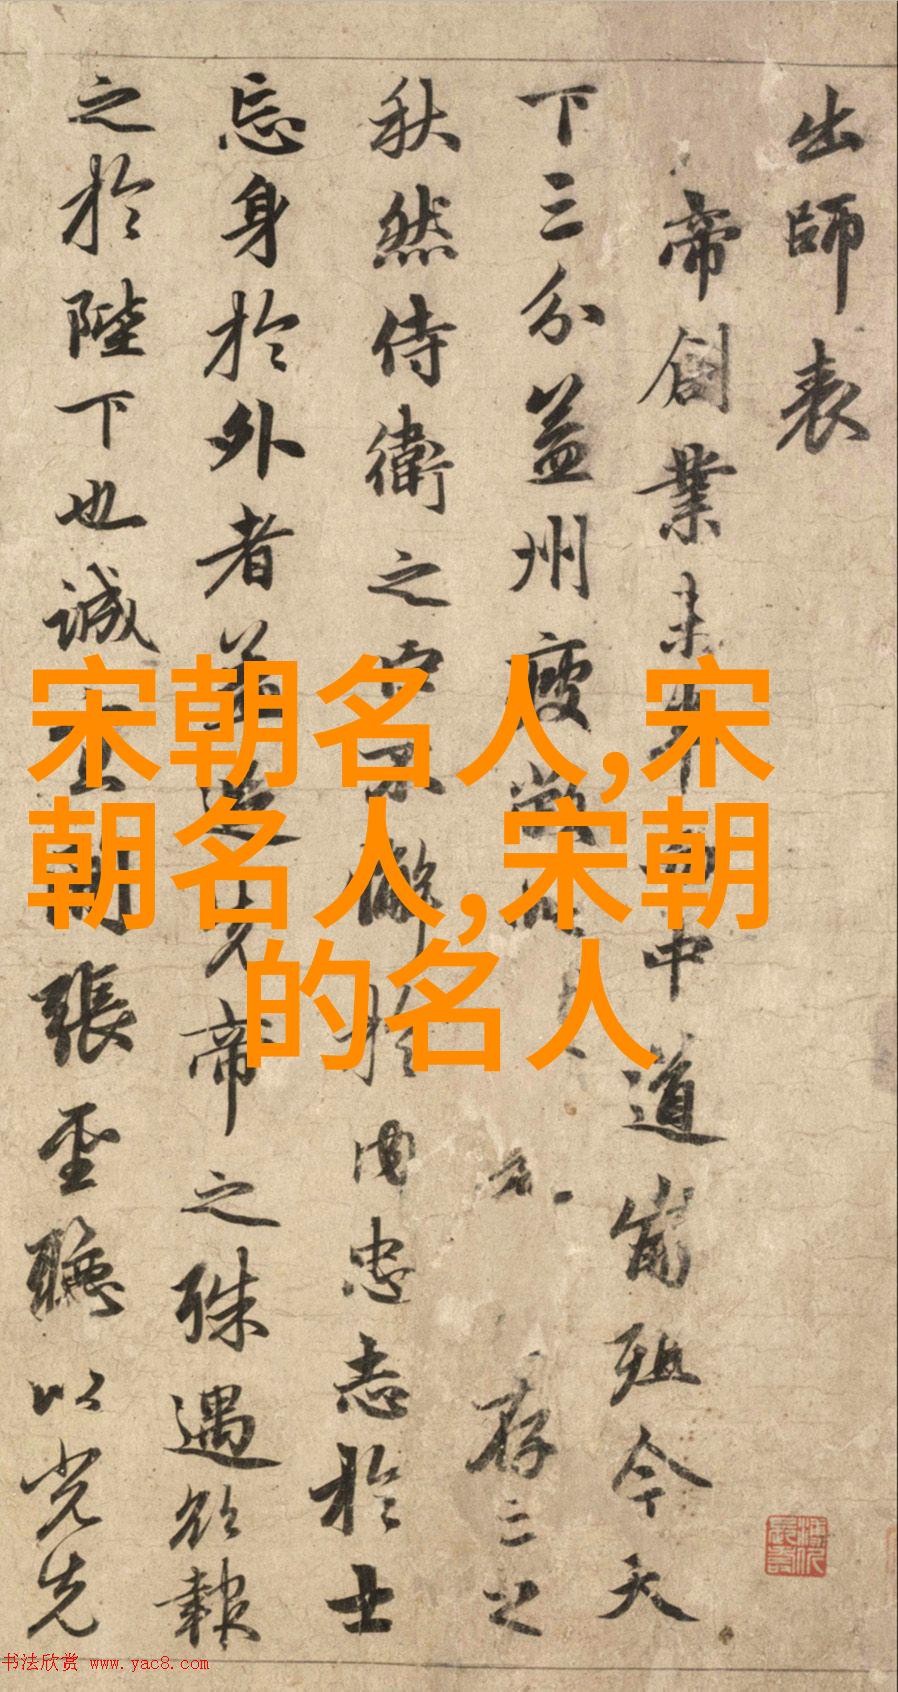 出師表
帝創業未半中道崩殂今天
下三分益州疲存亡之
秋然侍衛之臣不懈於内忠志於士
忘身於外者蓋追先帝之殊遇欲報
之於陛下也誠宜開張聖聽以光先
宋朝名人,宋
朝名人,宋朝
的名人
书法欣赏 www.yac8.com